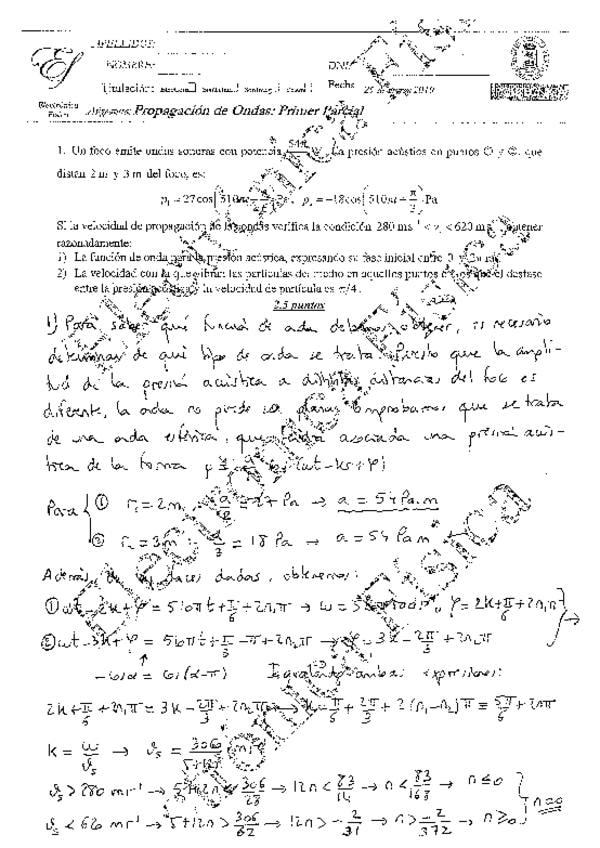 APELLIDOS:
NOMBRE:
DNI:
Titulación:
Fecha: 25 de marzo 2010
Electrónica Física
Asignatura: Propagación de Ondas: Primer Parcial
1. Un foco emite ondas sonoras con potencia 54π W. La presión acústica en puntos ① y ②, que
distan 2 m y 3 m del foco, es:
p₁ = 27cos(510πt + π/6) Pa, p₂ = −18cos(510πt + π/3) Pa
Si la velocidad de propagación de las ondas verifica la condición 280 ms⁻¹ < vₛ < 620 ms⁻¹, obtener
razonadamente:
1) La función de onda para la presión acústica, expresando su fase inicial entre 0 y 2π rad.
2) La velocidad con la que vibran las partículas del medio en aquellos puntos en los que el desfase
entre la presión acústica y la velocidad de partícula es π/4.
2.5 puntos
1) Para saber qué función de onda debemos obtener, es necesario
determinar de qué tipo de onda se trata. Puesto que la ampli-
tud de la presión acústica a distintas distancias del foco es
diferente, la onda no puede ser plana. Comprobamos que se trata
de una onda esférica, que tendrá asociada una presión acús-
tica de la forma p = a/r cos(ωt-kr+φ)
Para ① r₁=2m, a/2 = 27 Pa → a = 54 Pa.m
② r₂=3m, a/3 = 18 Pa → a = 54 Pa m
Además, de las fases dadas, obtenemos:
① ωt-2k+φ = 510πt+π/6+2n₁π → ω=510π rad/s, φ=2k+π/6+2n₁π
② ωt-3k+φ = 510πt+π/3-π+2n₂π → φ=3k-2π/3+2n₂π
-cosα = cos(α-π) Igualando ambas expresiones:
2k+π/6+2n₁π = 3k-2π/3+2n₂π → k=π/6+2π/3+2(n₁-n₂)π = 5π/6+2nπ
k = ω/vₛ → vₛ = 3060/(5+12n) ms⁻¹
vₛ > 280 ms⁻¹ → 5+12n < 306/28 → 12n < 83/14 → n < 83/168 → n ≤ 0
vₛ < 620 ms⁻¹ → 5+12n > 306/62 → 12n > -2/31 → n > -2/372 → n ≥ 0
n=0